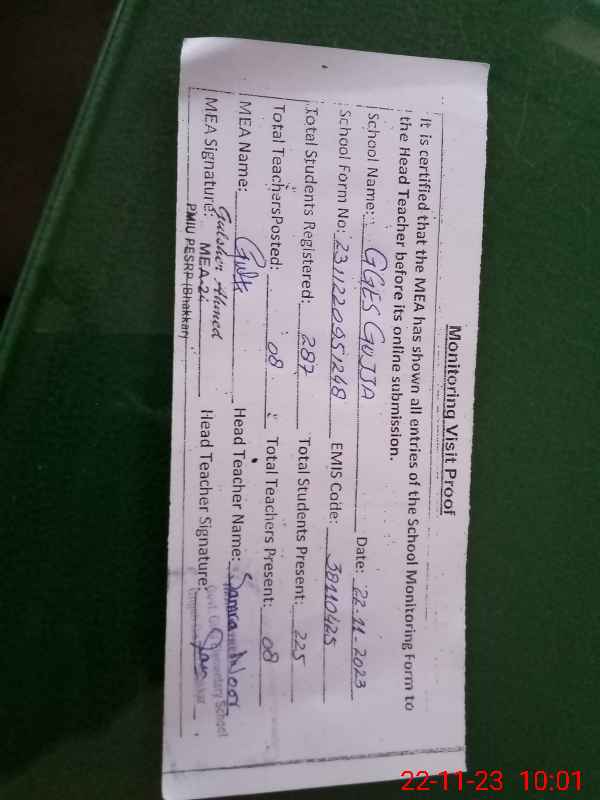 Monitoring Visit Proof
It is certified that the MEA has shown all entries of the School Monitoring Form to
the Head Teacher before its online submission.
School Name: GGES GUJJA Date: 22-11-2023
School Form No: 2311220951248 EMIS Code: 38110425
Total Students Registered: 287 Total Students Present: 225
Total TeachersPosted: 08 Total Teachers Present: 08
MEA Name: Head Teacher Name: Samra Noor
MEA Signature: Gulsher Ahmed Head Teacher Signature:
MEA-2i
PMIU PESRP (Bhakkar)
Elementary School
22-11-23 10:01